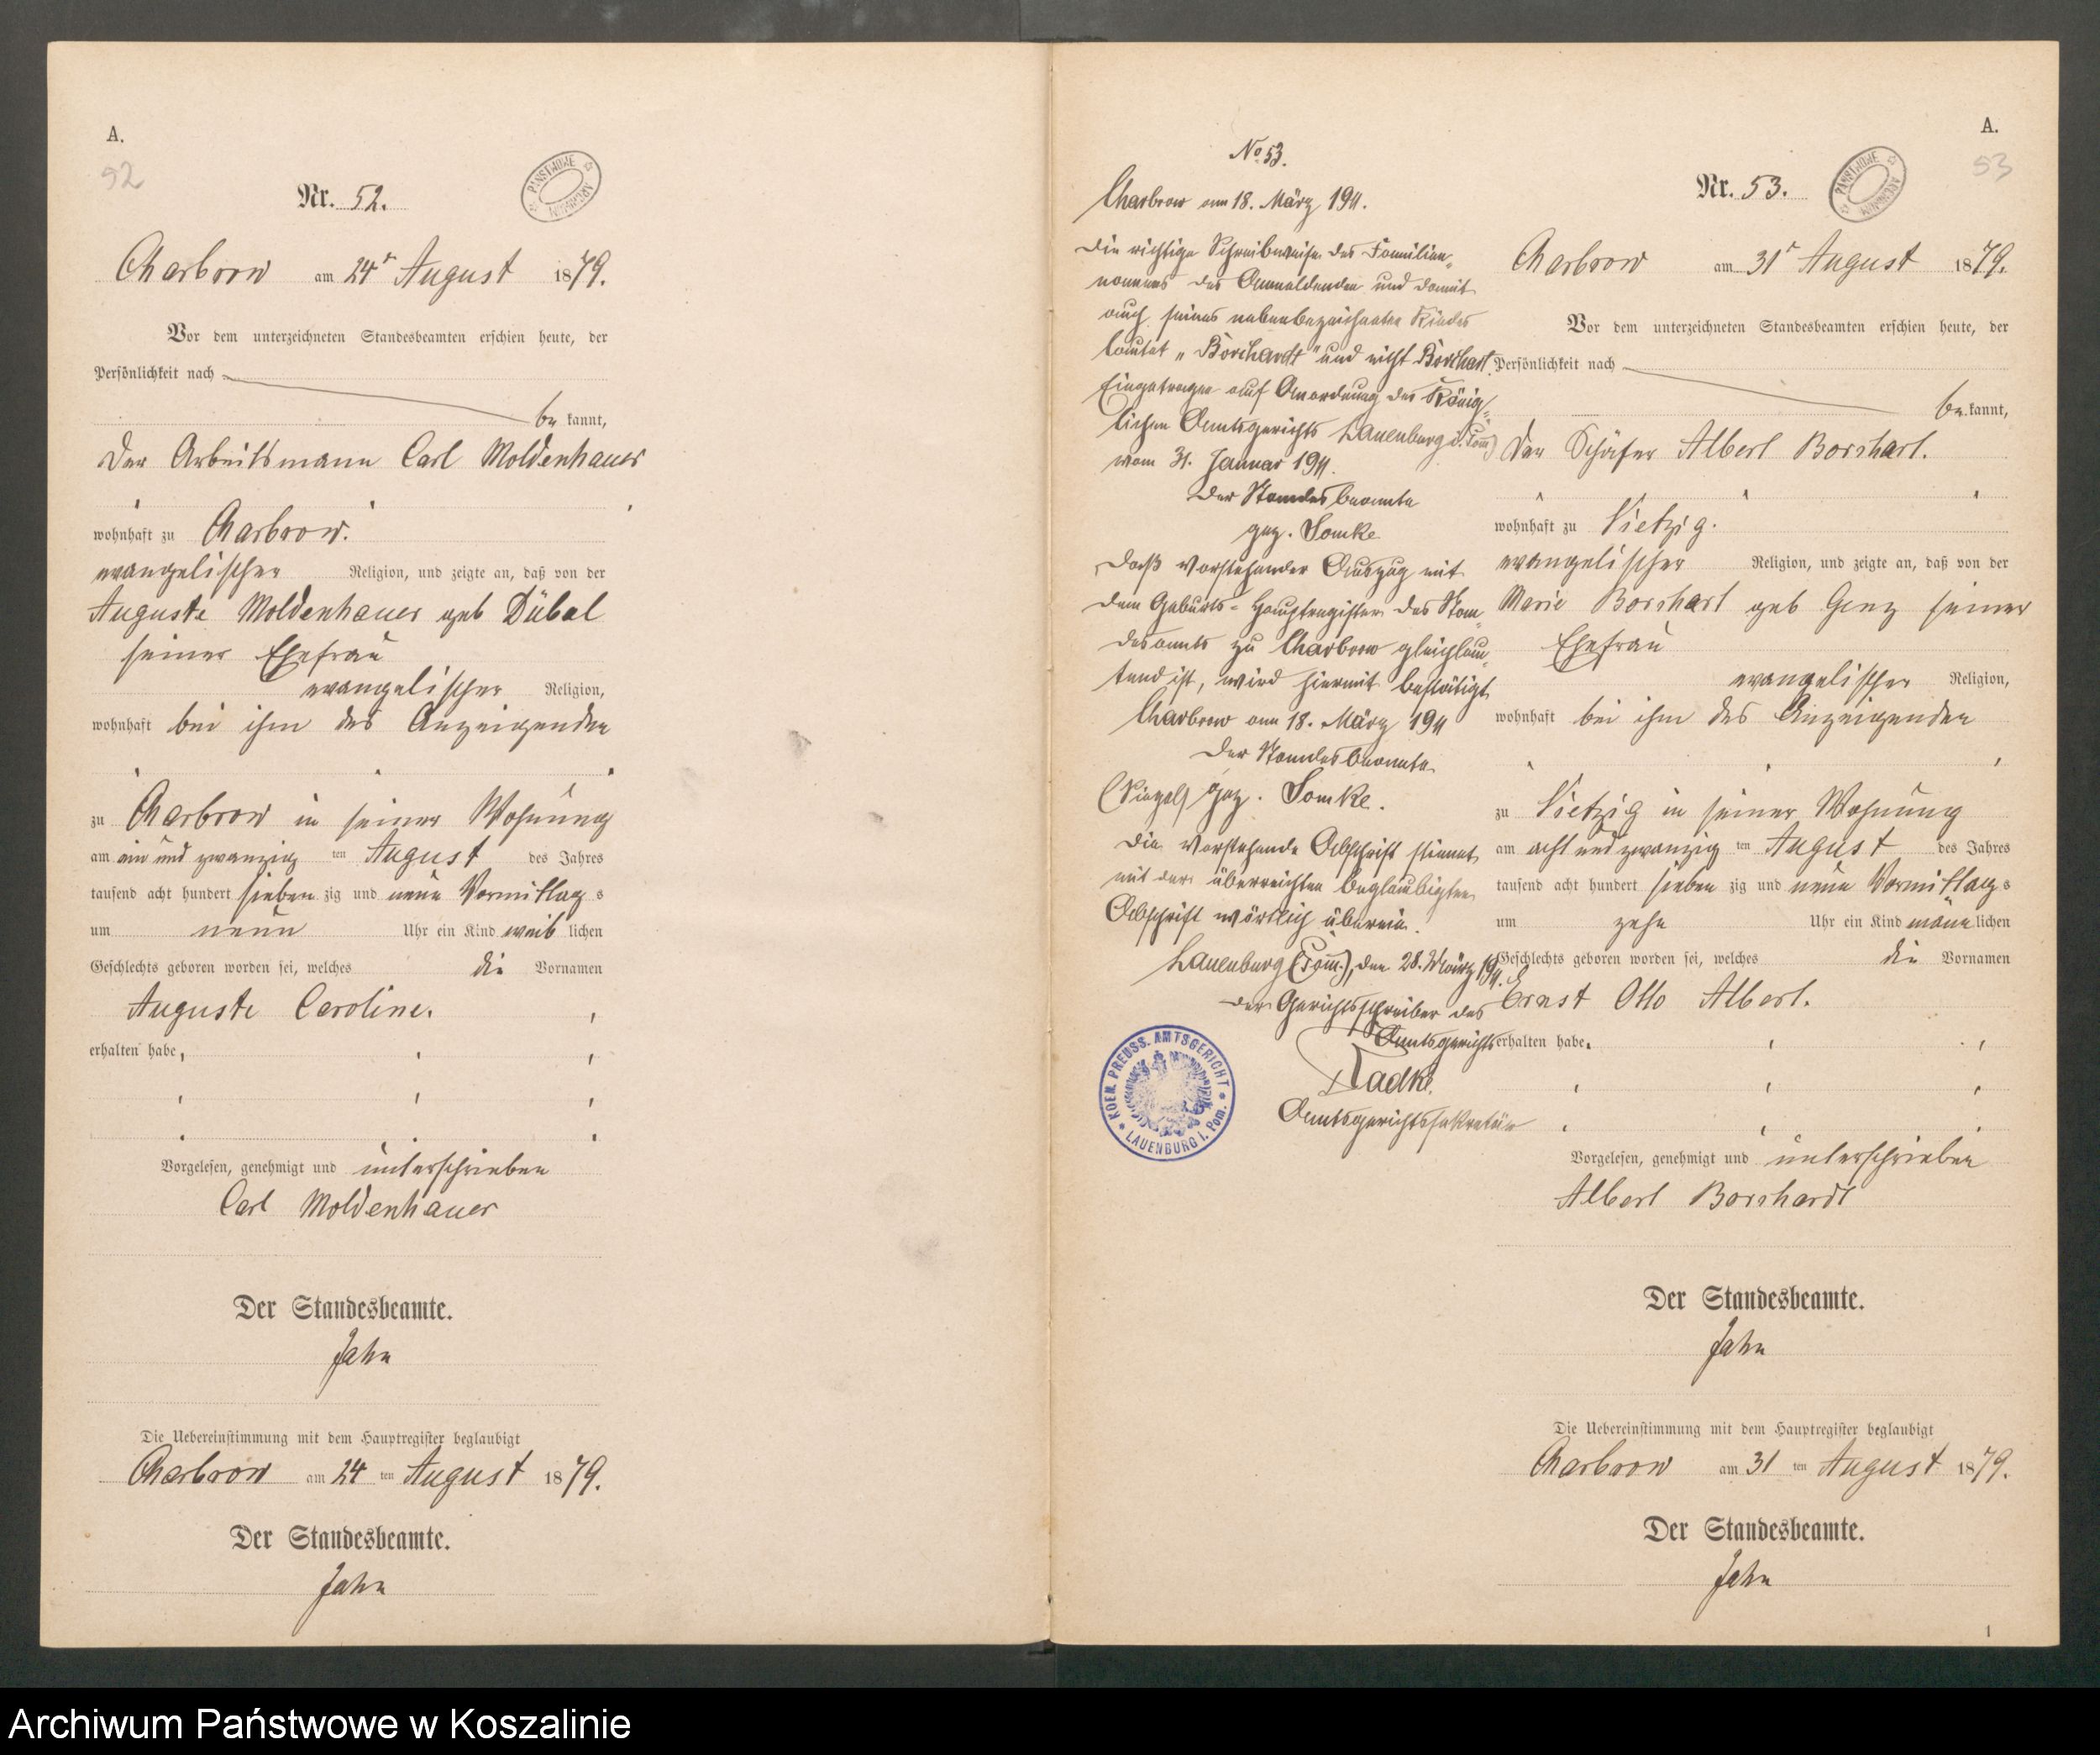 A.
52
Nr. 52.
PAŃSTWOWE ARCHIWUM
Charbrow am 24ᵗ August 1879.
Vor dem unterzeichneten Standesbeamten erschien heute, der
Persönlichkeit nach
be kannt,
der Arbeitsmann Carl Moldenhauer
wohnhaft zu Charbrow.
evangelischer Religion, und zeigte an, daß von der
Auguste Moldenhauer geb Dübal
seiner Ehefrau
evangelischer Religion,
wohnhaft bei ihm des Anzeigenden
zu Charbrow in seiner Wohnung
am ein und zwanzig ten August des Jahres
tausend acht hundert sieben zig und neun Vormittag s
um neun Uhr ein Kind weib lichen
Geschlechts geboren worden sei, welches die Vornamen
Auguste Caroline.
erhalten habe
Vorgelesen, genehmigt und unterschrieben
Carl Moldenhauer
Der Standesbeamte.
Jahn
Die Uebereinstimmung mit dem Hauptregister beglaubigt
Charbrow am 24 ten August 1879.
Der Standesbeamte.
Jahn
No 53.
Charbrow am 18. März 1911.
Die richtige Schreibweise des Familien-
namens des Anmeldenden und damit
auch seines nebenbezeichneten Kindes
lautet „Borchardt" und nicht Borchart.
Eingetragen auf Anordnung des König-
lichen Amtsgerichts Lauenburg i. Pom)
vom 31. Januar 1911.
Der Standesbeamte
gez. Somke
Daß vorstehender Auszug mit
dem Geburts-Hauptregister des Stan-
desamts zu Charbrow gleichlau-
tend ist, wird hiermit bestätigt
Charbrow am 18. März 1911
Der Standesbeamte
(Siegel) gez. Somke.
Die vorstehende Abschrift stimmt
mit der überreichten beglaubigten
Abschrift wörtlich überein.
Lauenburg (Pom.), den 28. März 1911.
Der Gerichtsschreiber des
Amtsgerichts
Radke
Amtsgerichtssekretär
KOEN. PREUSS. AMTSGERICHT
LAUENBURG I. Pom.
A.
53
Nr. 53.
PAŃSTWOWE ARCHIWUM
Charbrow am 31ᵗ August 1879.
Vor dem unterzeichneten Standesbeamten erschien heute, der
Persönlichkeit nach
be kannt,
der Schäfer Albert Borchart.
wohnhaft zu Vietzig.
evangelischer Religion, und zeigte an, daß von der
Marie Borchart geb Genz seiner
Ehefrau
evangelischer Religion,
wohnhaft bei ihm des Anzeigenden
zu Vietzig in seiner Wohnung
am acht und zwanzig ten August des Jahres
tausend acht hundert sieben zig und neun Vormittag s
um zehn Uhr ein Kind männ lichen
Geschlechts geboren worden sei, welches die Vornamen
Ernst Otto Albert.
erhalten habe
Vorgelesen, genehmigt und unterschrieben
Albert Borchardt
Der Standesbeamte.
Jahn
Die Uebereinstimmung mit dem Hauptregister beglaubigt
Charbrow am 31 ten August 1879.
Der Standesbeamte.
Jahn
1
Archiwum Państwowe w Koszalinie